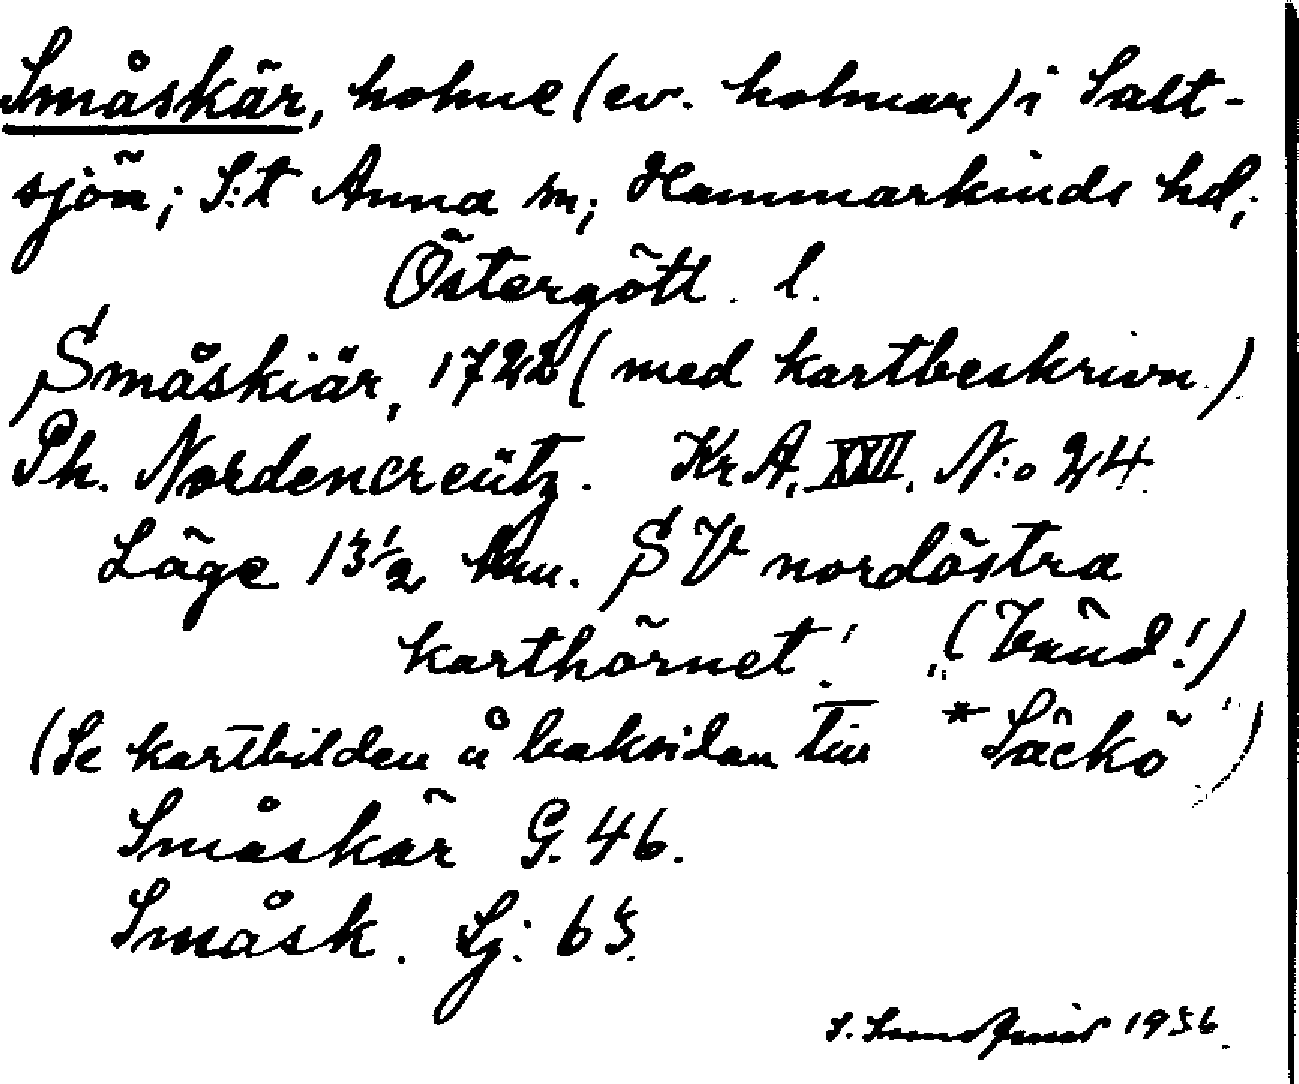 Småskär, holme (ev. holmar) i Salt-
sjön; S:t Anna sn; Hammarkinds hd;
Östergötl. l.
Småskiär, 1722 (med kartbeskrivn.)
Ph. Nordencreütz. Kr.A. XXII. N:o 24.
Läge 13 1/2 km. SV nordöstra
karthörnet! (Vänd!)
(Se kartbilden å baksidan till "*Säckö")
Småskär G. 46.
Småsk. Sj: 65.
S. 1936.